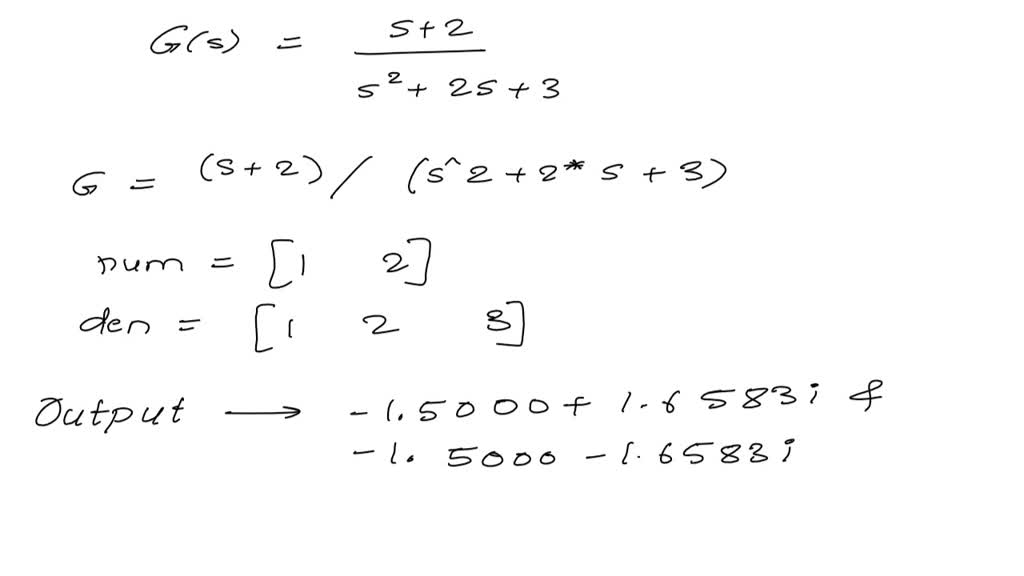 G(s) = s+2 / s²+ 2s+3
G = (s+2) / (s^2+2* s+3)
num = [1 2]
den = [1 2 3]
Output → -1.5000+ 1.6583i &
-1.5000 -1.6583i